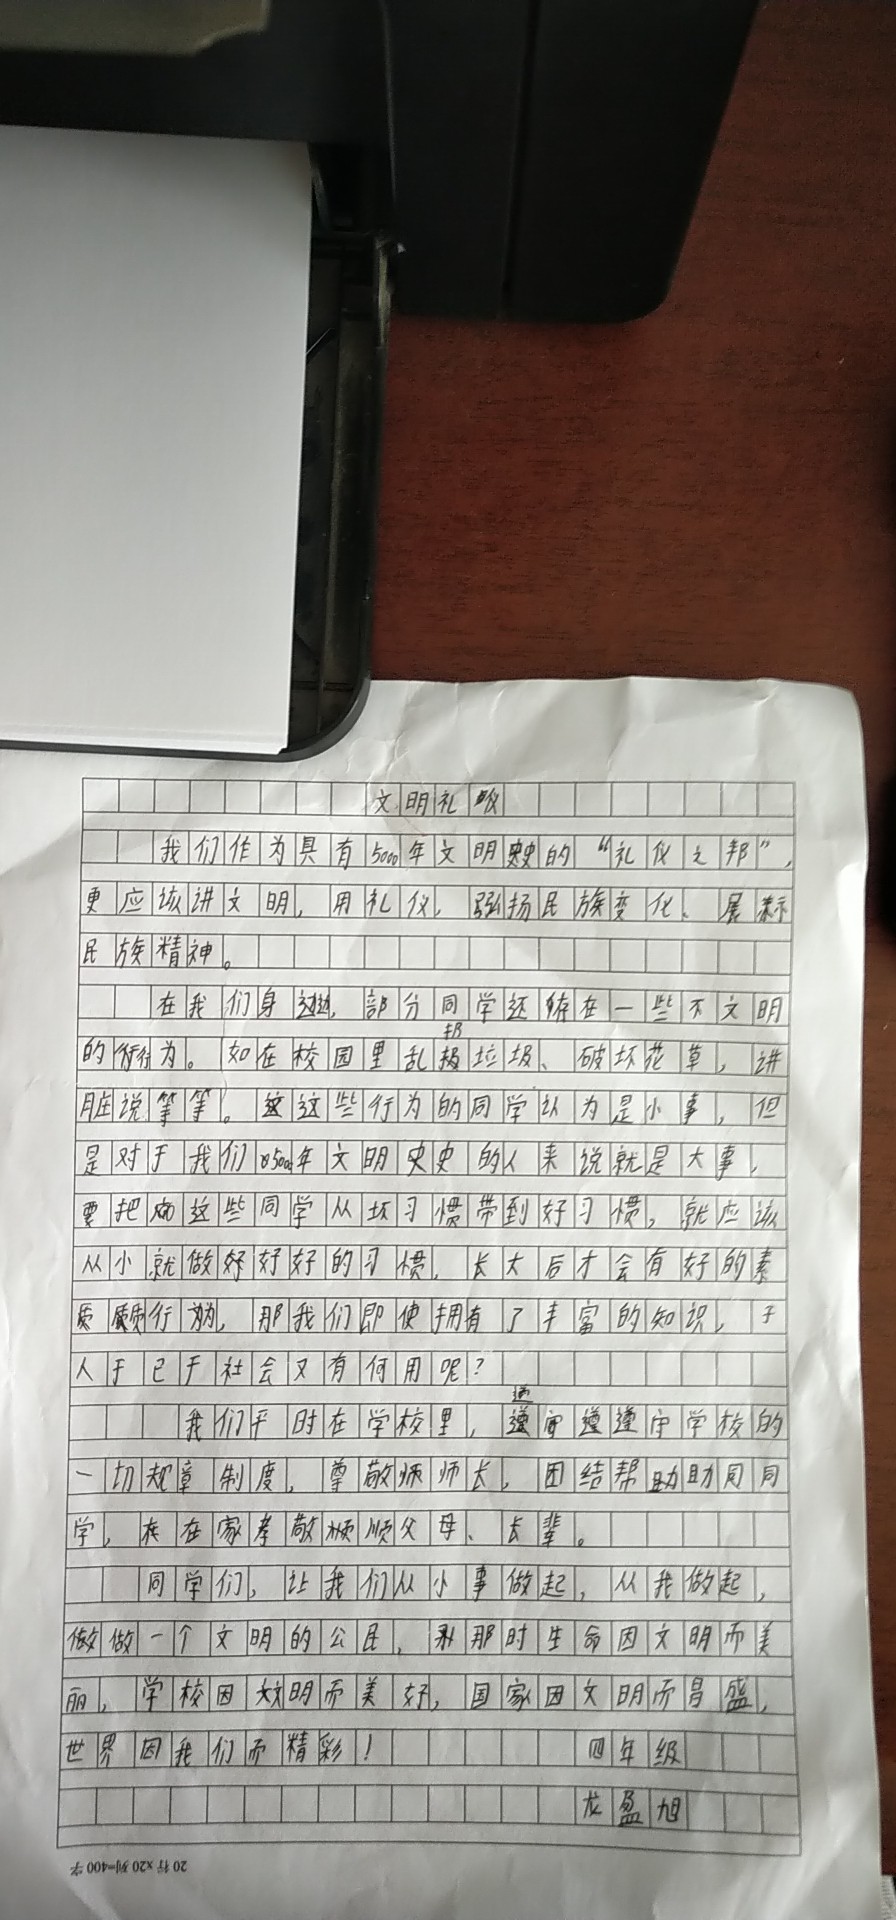 文明礼仪
我们作为具有5000年文明史的“礼仪之邦”，
更应该讲文明，用礼仪，弘扬民族变化、展示
民族精神。
在我们身边，部分同学还存在一些不文明
的行为。如在校园里乱扔垃圾、破坏花草，讲
脏说等等。这这些行为的同学认为是小事，但
是对于我们5000年文明史史的人来说就是大事，
要把这些同学从坏习惯带到好习惯，就应该
从小就做好好好的习惯，长大后才会有好的素
质质行为，那我们即使拥有了丰富的知识，于
人于己于社会又有何用呢？
我们平时在学校里，遵守遵遵守学校的
一切规章制度，尊敬师师长，团结帮助助同同
学，在在家孝敬顺顺父母、长辈。
同学们，让我们从小事做起，从我做起，
做做一个文明的公民，那时生命因文明而美
丽，学校因文明而美好，国家因文明而昌盛，
世界因我们而精彩！ 四年级
龙盈旭
20行×20列=400字